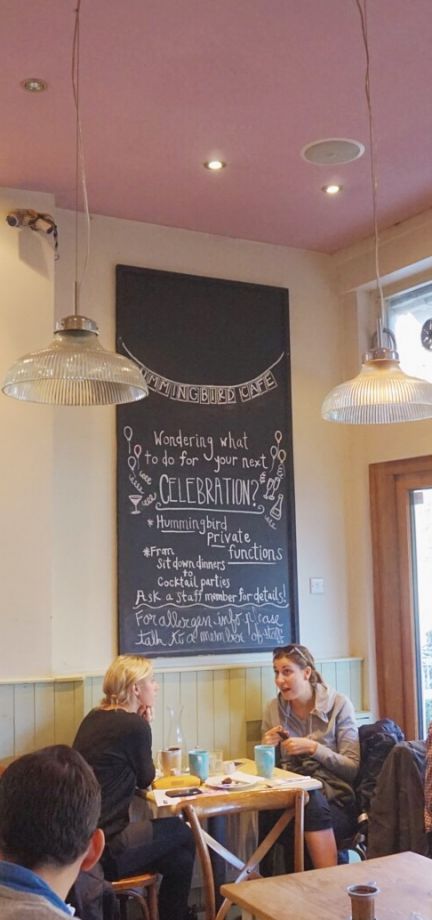 HUMMINGBIRD CAFE
Wondering what
to do for your next
CELEBRATION?
* Hummingbird
private
functions
* From
sit down dinners
to
Cocktail parties
Ask a staff member for details!
For allergen info please
talk to a member of staff